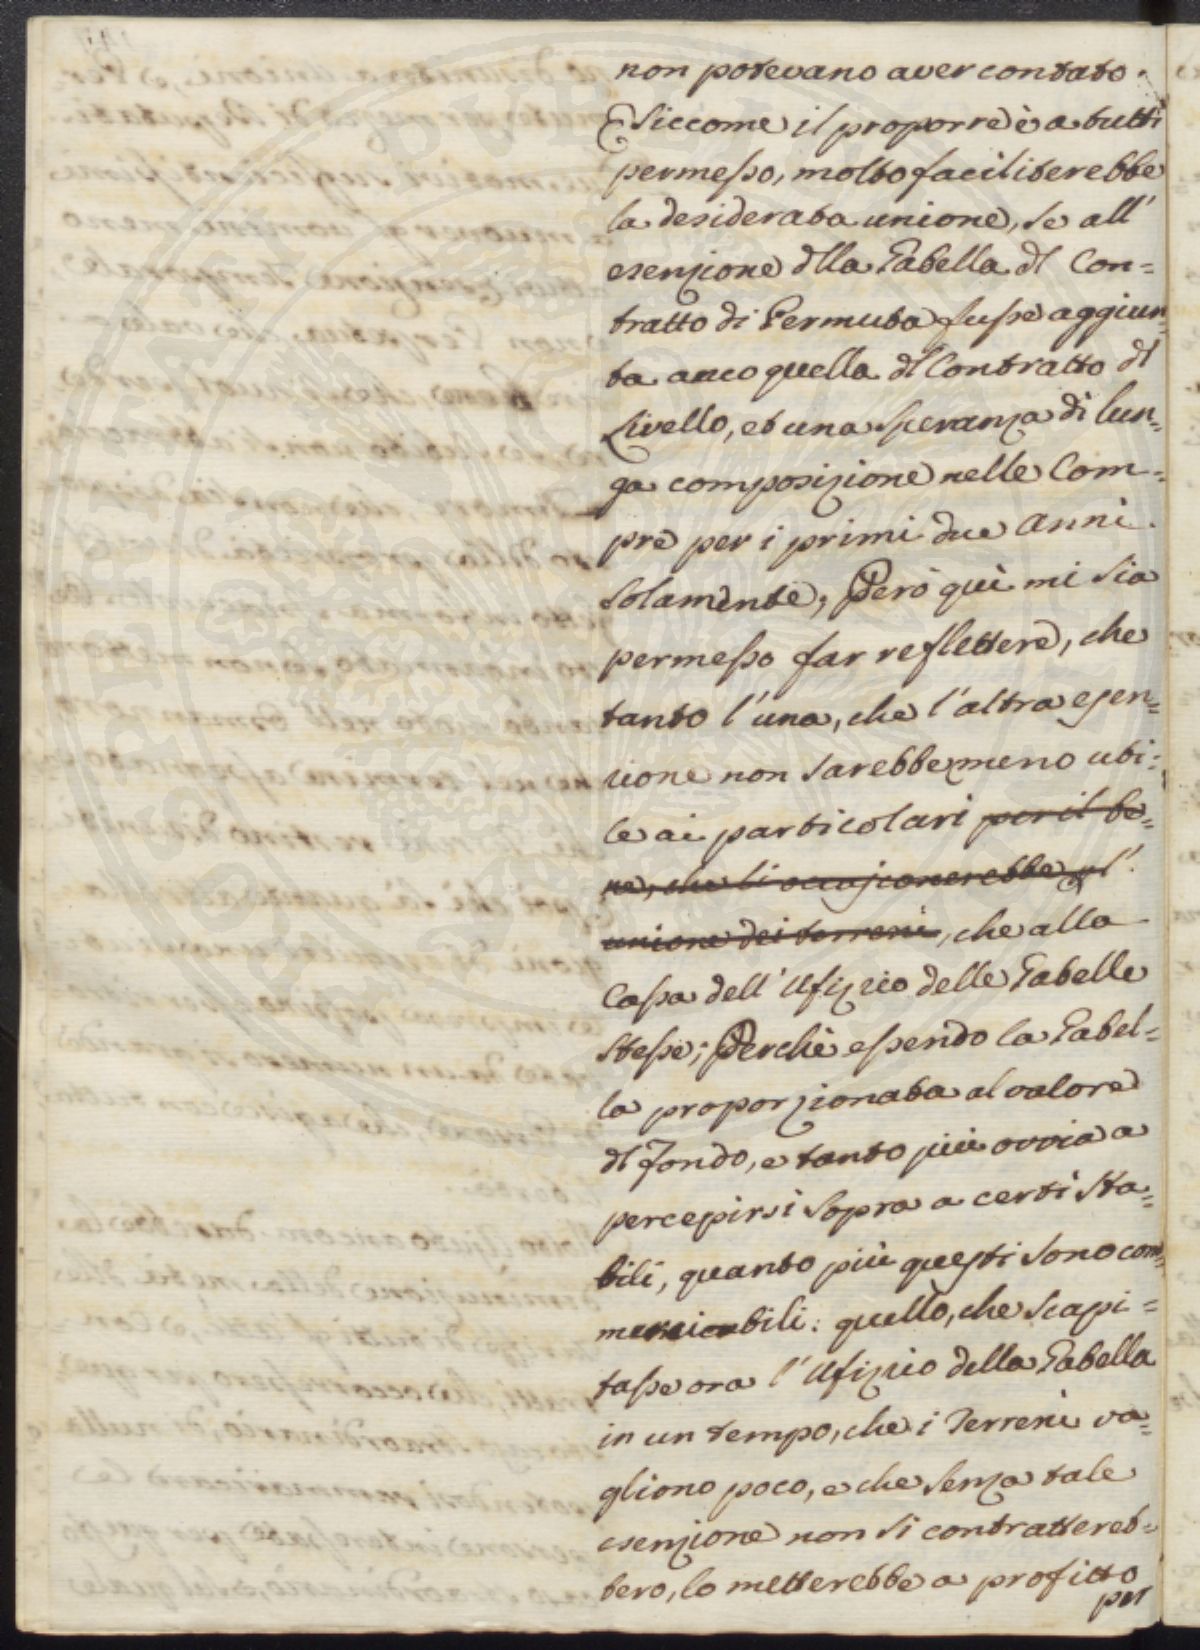 non potevano aver contato.
E siccome il proporre è a tutti
permesso, molto faciliterebbe
la desiderata unione, se all'
esenzione dlla Tabella dl Con=
tratto di Permuta fusse aggiun=
ta anco quella dl Contratto dl
Livello, et una speranza di lun=
ga composizione nelle Com=
pre per i primi due anni
solamente; Però quì mi sia
permesso far reflettere, che
tanto l'una, che l'altra esen=
zione non sarebbe meno uti=
le ai particolari per il be=
ne, che li occasionerebbe l'
unione dei terreni, che alla
Cassa dell'Ufizio delle Tabelle
stesse; Perchè essendo la Tabel=
la proporzionata al valore
dl Fondo, e tanto più ovvia a
percepirsi sopra a certi sta=
bili, quanto più questi sono com=
merciabili: quello, che scapi=
tasse ora l'Ufizio della Tabella
in un tempo, che i Terreni va=
gliono poco, e che senza tale
esenzione non si contrattereb=
bero, lo metterebbe a profitto
per